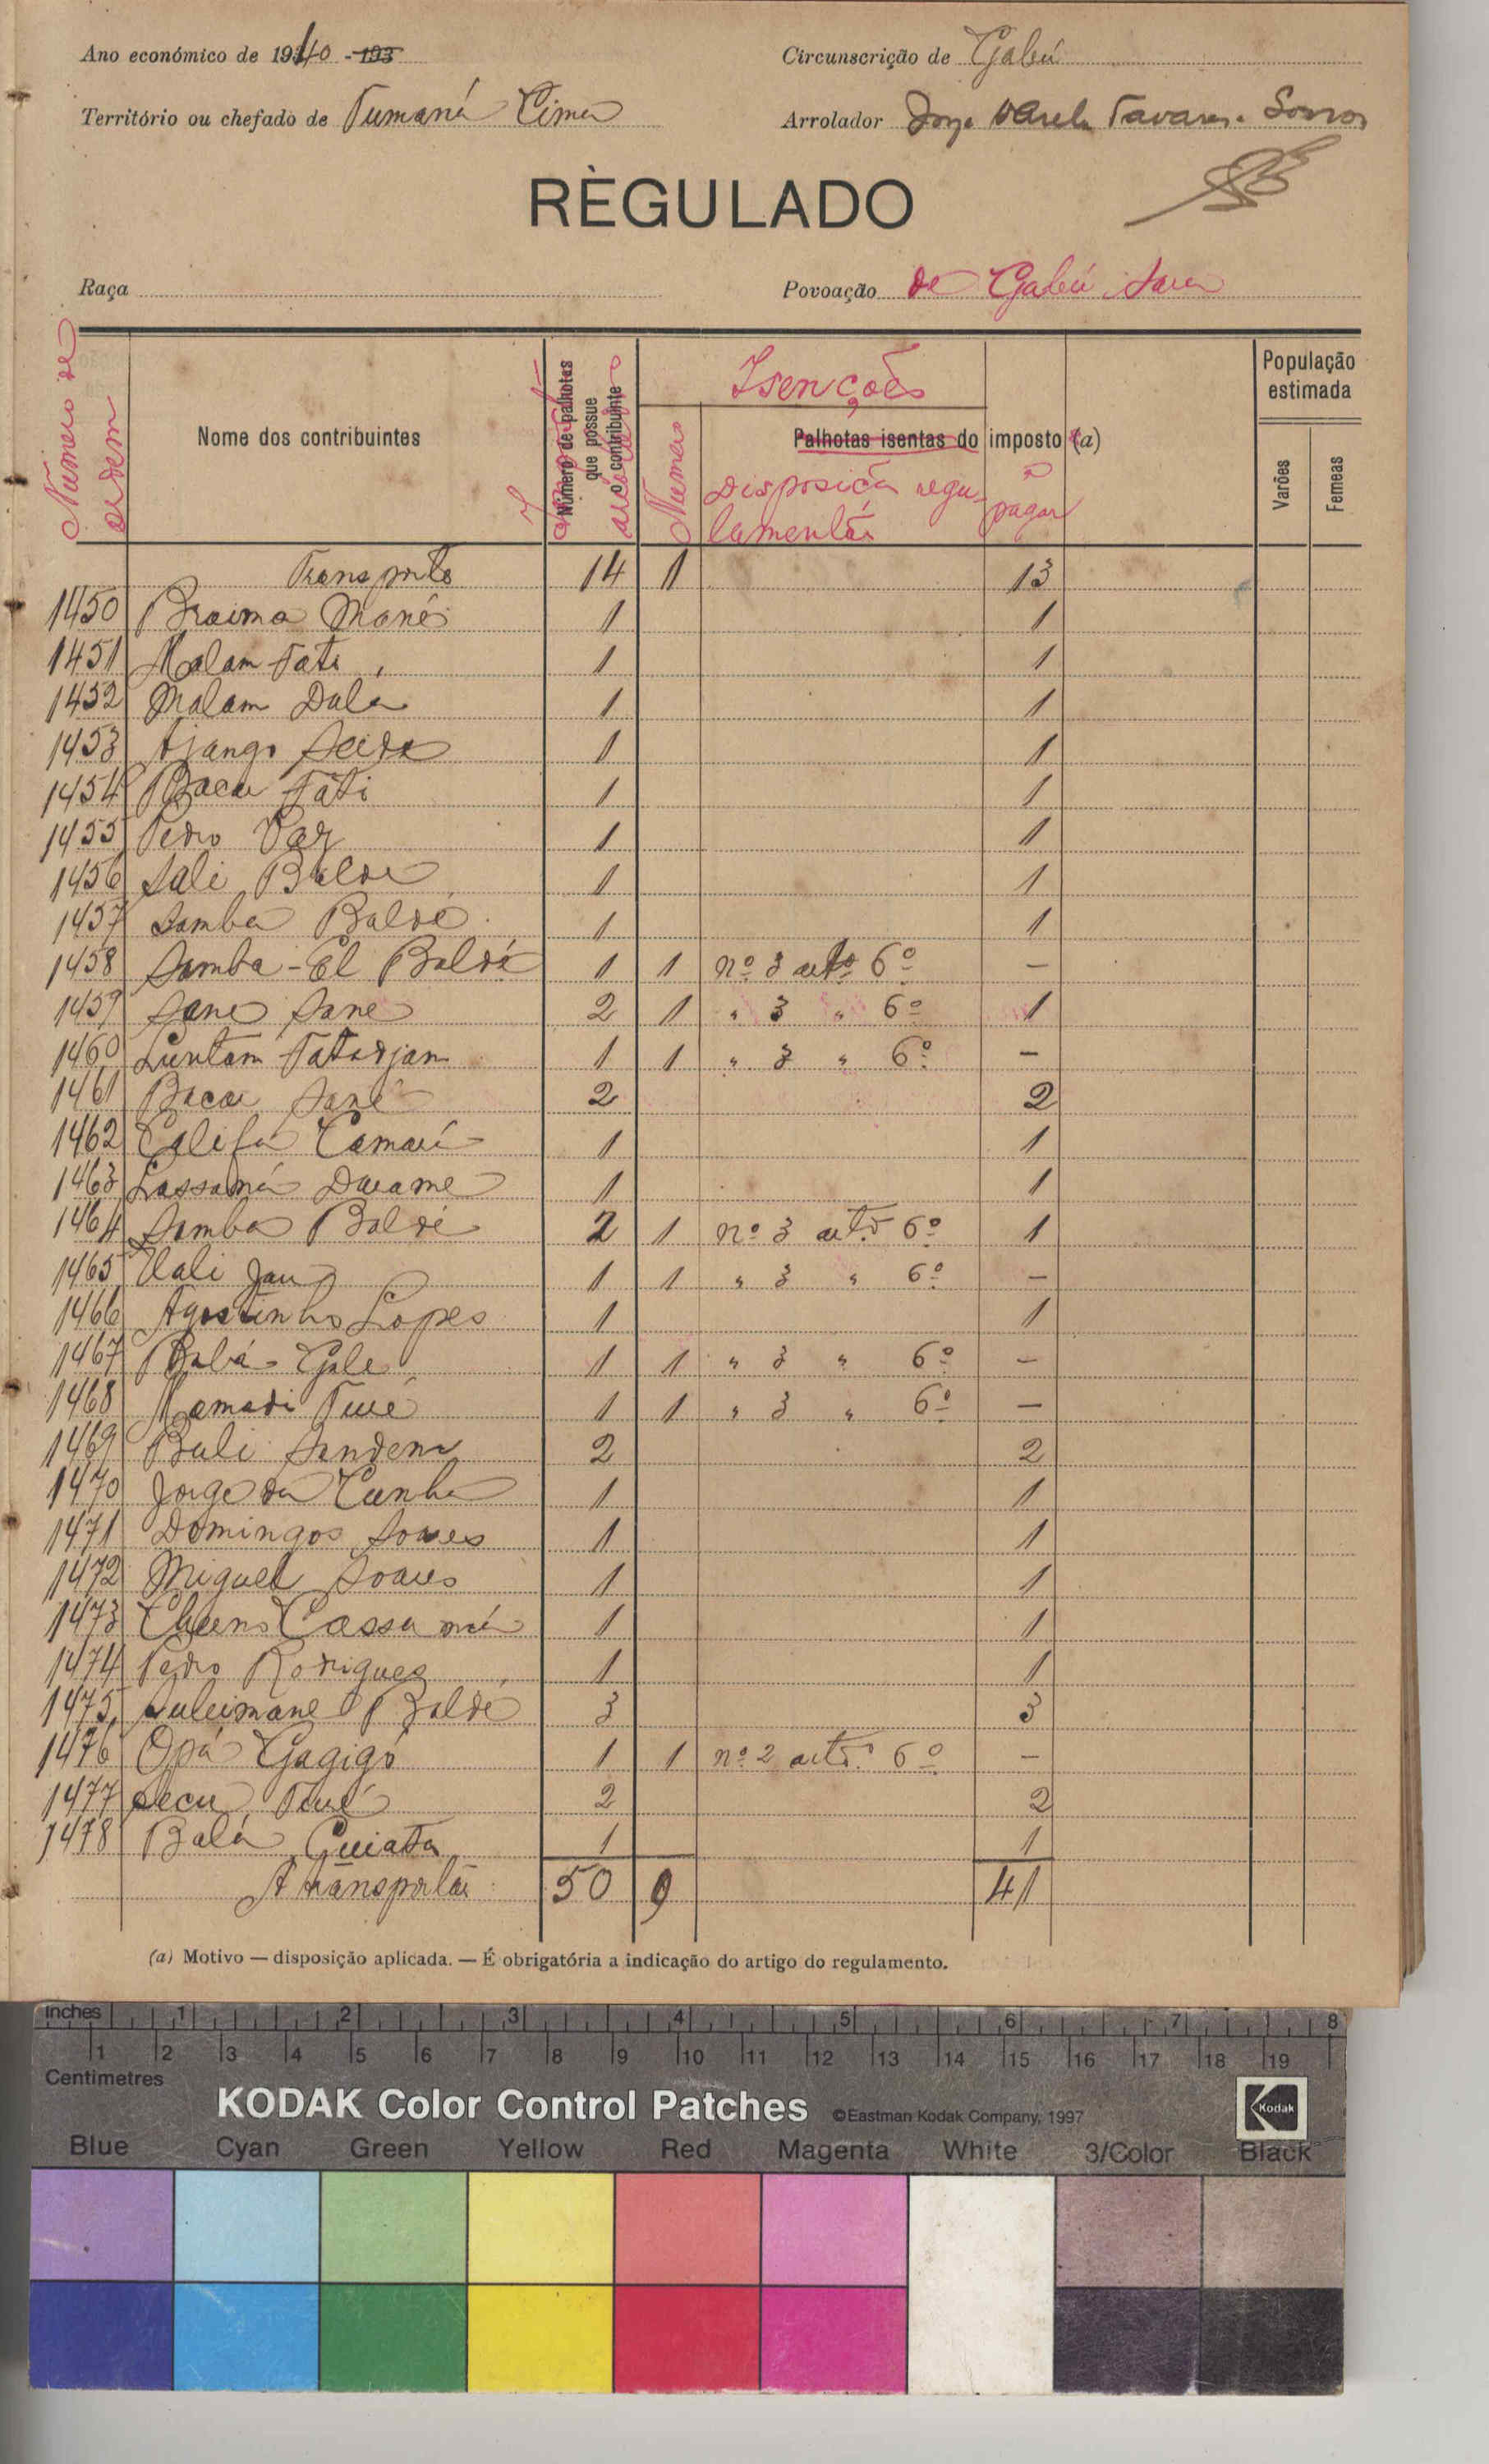 Ano económico de 1940 - 193
Circunscrição de Gabú
Território ou chefado de Tumaná Cima
Arrolador Jorge Varela Tavares Soares
RÈGULADO
Raça
Povoação de Gabú Sara
Número de ordem
Nome dos contribuintes
Número de palhotas que possue o contribuinte
Isenções
Palhotas isentas do imposto (a)
Numero
Disposição regulamentar
a pagar
População estimada
Varões
Femeas
Transporte 14 1 13
1450 Braima Mané 1 1
1451 Malam Fati 1 1
1452 Malam Dala 1 1
1453 Ajango Seide 1 1
1454 Bacar Fati 1 1
1455 Pedro Vaz 1 1
1456 Sali Balde 1 1
1457 Samba Baldé 1 1
1458 Samba-El Baldé 1 1 nº 3 artº 6º —
1459 Sane Sane 2 1 " 3 " 6º 1
1460 Luntam Tatadjan 1 1 " 3 " 6º —
1461 Bacar Sané 2 2
1462 Califa Camará 1 1
1463 Lassaná Darame 1 1
1464 Samba Baldé 2 1 nº 3 artº 6º 1
1465 Uali Jau 1 1 " 3 " 6º —
1466 Agostinho Lopes 1 1
1467 Babá Gale 1 1 " 3 " 6º —
1468 Mamadi Turé 1 1 " 3 " 6º —
1469 Buli Sandem 2 2
1470 Jorge da Cunha 1 1
1471 Domingos Soares 1 1
1472 Miguel Soares 1 1
1473 Cassamá 1 1
1474 Pedro Rodrigues 1 1
1475 Suleimane Baldé 3 3
1476 Opá Gagigó 1 1 nº 2 artº 6º —
1477 Secu Turé 2 2
1478 Balá Cuiata 1 1
A transportar 50 9 41
(a) Motivo — disposição aplicada. — É obrigatória a indicação do artigo do regulamento.
inches 1 2 3 4 5 6 7 8
1 2 3 4 5 6 7 8 9 10 11 12 13 14 15 16 17 18 19
Centimetres
KODAK Color Control Patches ©Eastman Kodak Company, 1997 Kodak
Blue Cyan Green Yellow Red Magenta White 3/Color Black